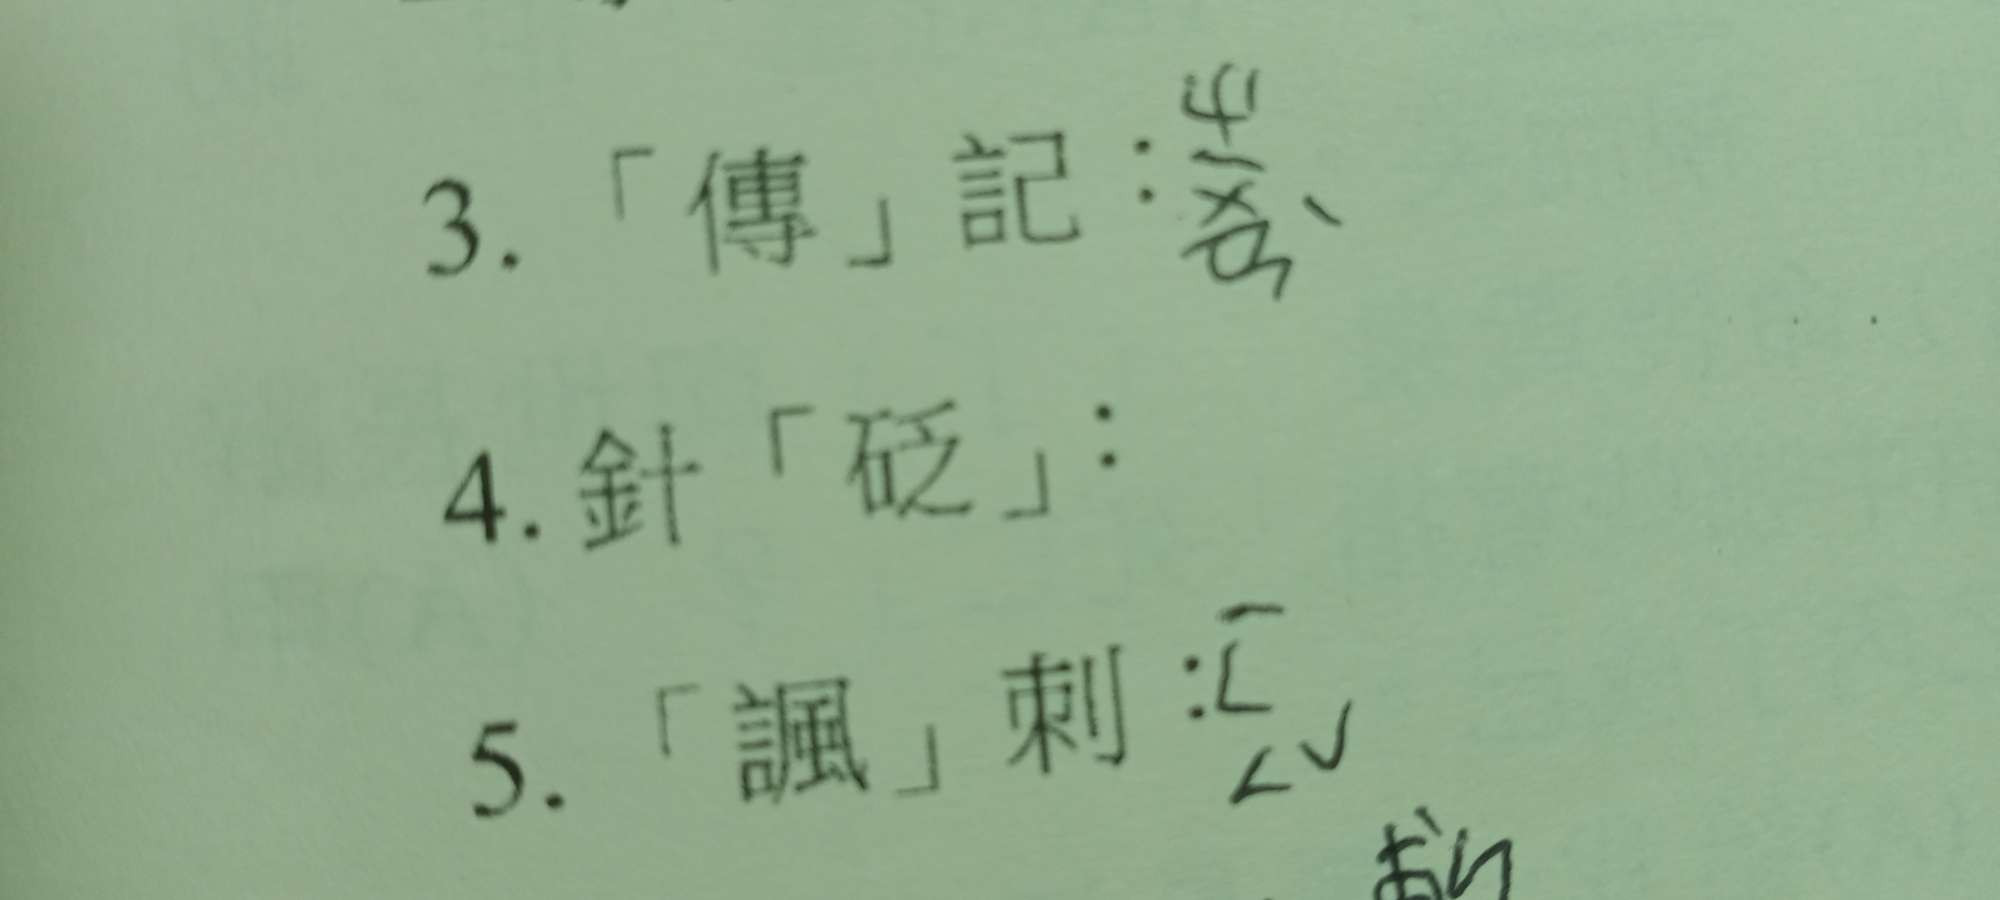 3.「傳」記：ㄓㄨㄢˋ
4. 針「砭」：
5.「諷」刺：ㄈㄥˇ